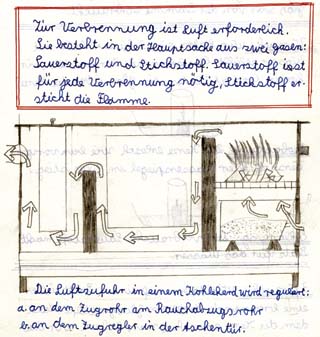 Zur Verbrennung ist Luft erforderlich.
Sie besteht in der Hauptsache aus zwei Gasen:
Sauerstoff und Stickstoff. Sauerstoff isst
für jede Verbrennung nötig, Stickstoff er-
stickt die Flamme.
Die Luftzufuhr in einem Kohleherd wird reguliert:
a. an dem Zugrohr am Rauchabzugsrohr
b. an dem Zugregler in der Aschentür.